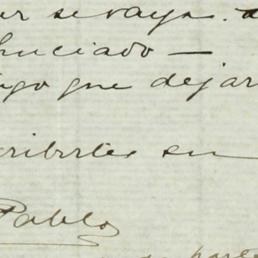 se vaya.
huciado —
que dejar
cribirles su
Pablo